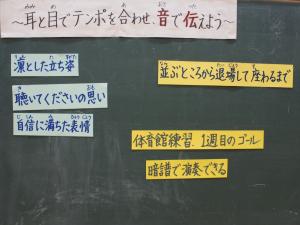 ～耳と目でテンポを合わせ、音で伝えよう～
凛とした立ち姿
聴いてくださいの思い
自信に満ちた表情
並ぶところから退場して座わるまで
体育館練習.1週目のゴール
暗譜で演奏できる